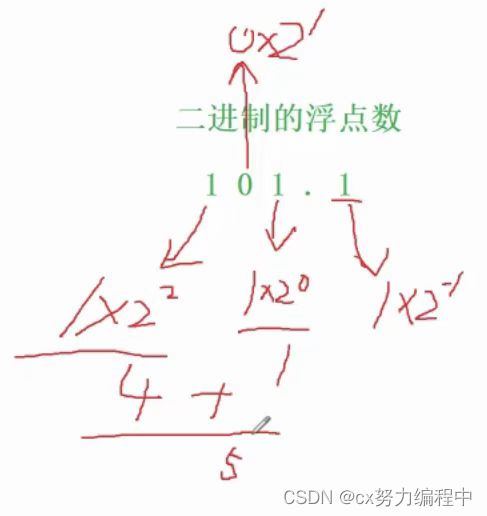 0×2¹
二进制的浮点数
1 0 1 . 1
1×2² 1×2⁰ 1×2⁻¹
4 + 1
5
CSDN @cx努力编程中